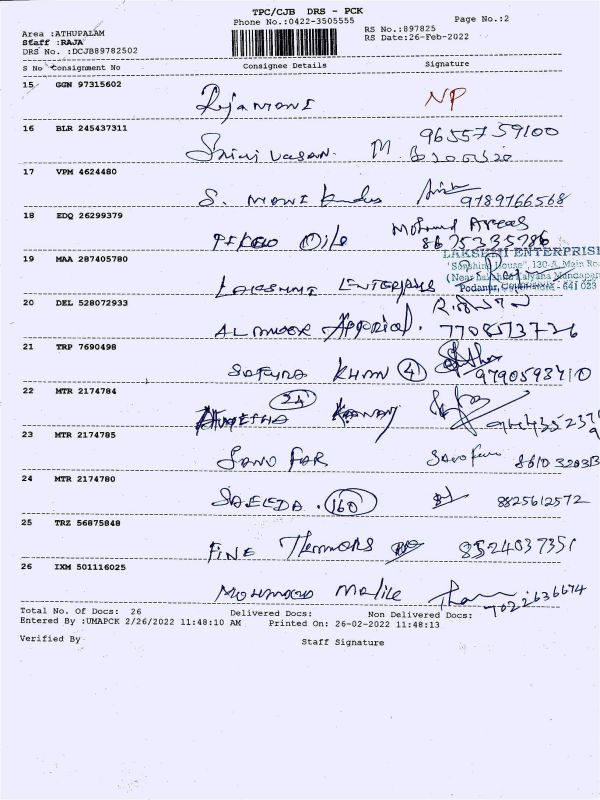 TPC/CJB DRS - PCK
Phone No.:0422-3505555 Page No.:2
Area :ATHUPALAM RS No.:897825
Staff :RAJA RS Date:26-Feb-2022
DRS No. :DCJB89782502
S No Consignment No Consignee Details Signature
15 GGN 97315602
RajaMONI NP
16 BLR 245437311
Srinivasan. M 9655759100
17 VPM 4624480
S. MONI 9789766568
18 EDQ 26299379
Mohmed
OILS 8675335786
LAKSHMI ENTERPRISE
19 MAA 287405780
"Sunshine House", 130-A, Main Ro
Kalyana Mandapam
LAKSHMI ENTERPRISES Podanur, - 641 023
20 DEL 528072933
ALANOOR 7708573726
21 TRP 7690498
SAFURA KHAN 41 9790593710
22 MTR 2174784
24
23 MTR 2174785
SANOFAR Sanofar
24 MTR 2174780
SAEEDA. 160 8825612572
25 TRZ 56875848
FINE 8524037351
26 IXM 501116025
7022636674
Total No. Of Docs: 26 Delivered Docs: Non Delivered Docs:
Entered By :UMAPCK 2/26/2022 11:48:10 AM Printed On: 26-02-2022 11:48:13
Verified By Staff Signature